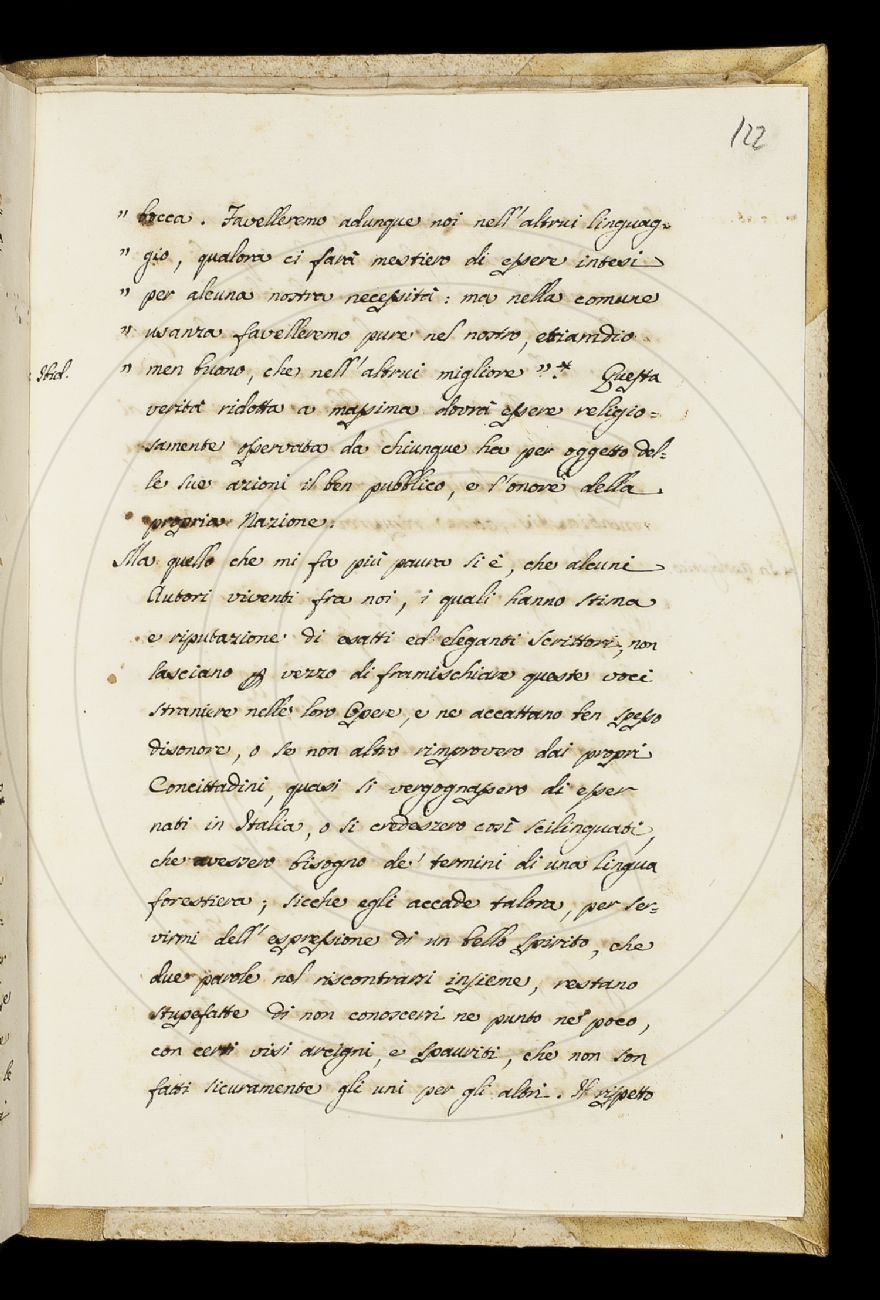 122
" bocca. Favelleremo adunque noi nell'altrui linguag=
" gio, qualora ci farà mestiero di essere intesi
" per alcuna nostra necessità: ma nella comune
" usanza favelleremo pure nel nostro, etiamdio
Ibid. " men buono, che nell'altrui migliore ".* Questa
verità ridotta a massima dovrà essere religio=
samente osservata da chiunque ha per oggetto del=
le sue azioni il ben pubblico, e l'onore della
propria Nazione.
Ma quello che mi fa più paura si è, che alcuni
Autori viventi fra noi, i quali hanno stima
e riputazione di esatti ed eleganti Scrittori, non
lasciano vezzo di framischiare queste voci
straniere nelle loro Opere, e ne accattano ben spesso
disonore, o se non altro rimprovero dai propri
Concittadini, quasi si vergognassero di esser
nati in Italia, o si credeszero così scilinguati,
che aveszero bisogno de' termini di una lingua
forestiera; sicche egli accade talora, per ser=
virmi dell'espressione di un bello spirito, che
due parole nel riscontrarsi insieme, restano
stupefatte di non conoscersi ne punto ne poco,
con certi visi arcigni, e spauriti, che non son
fatti sicuramente gli uni per gli altri. Il rispetto